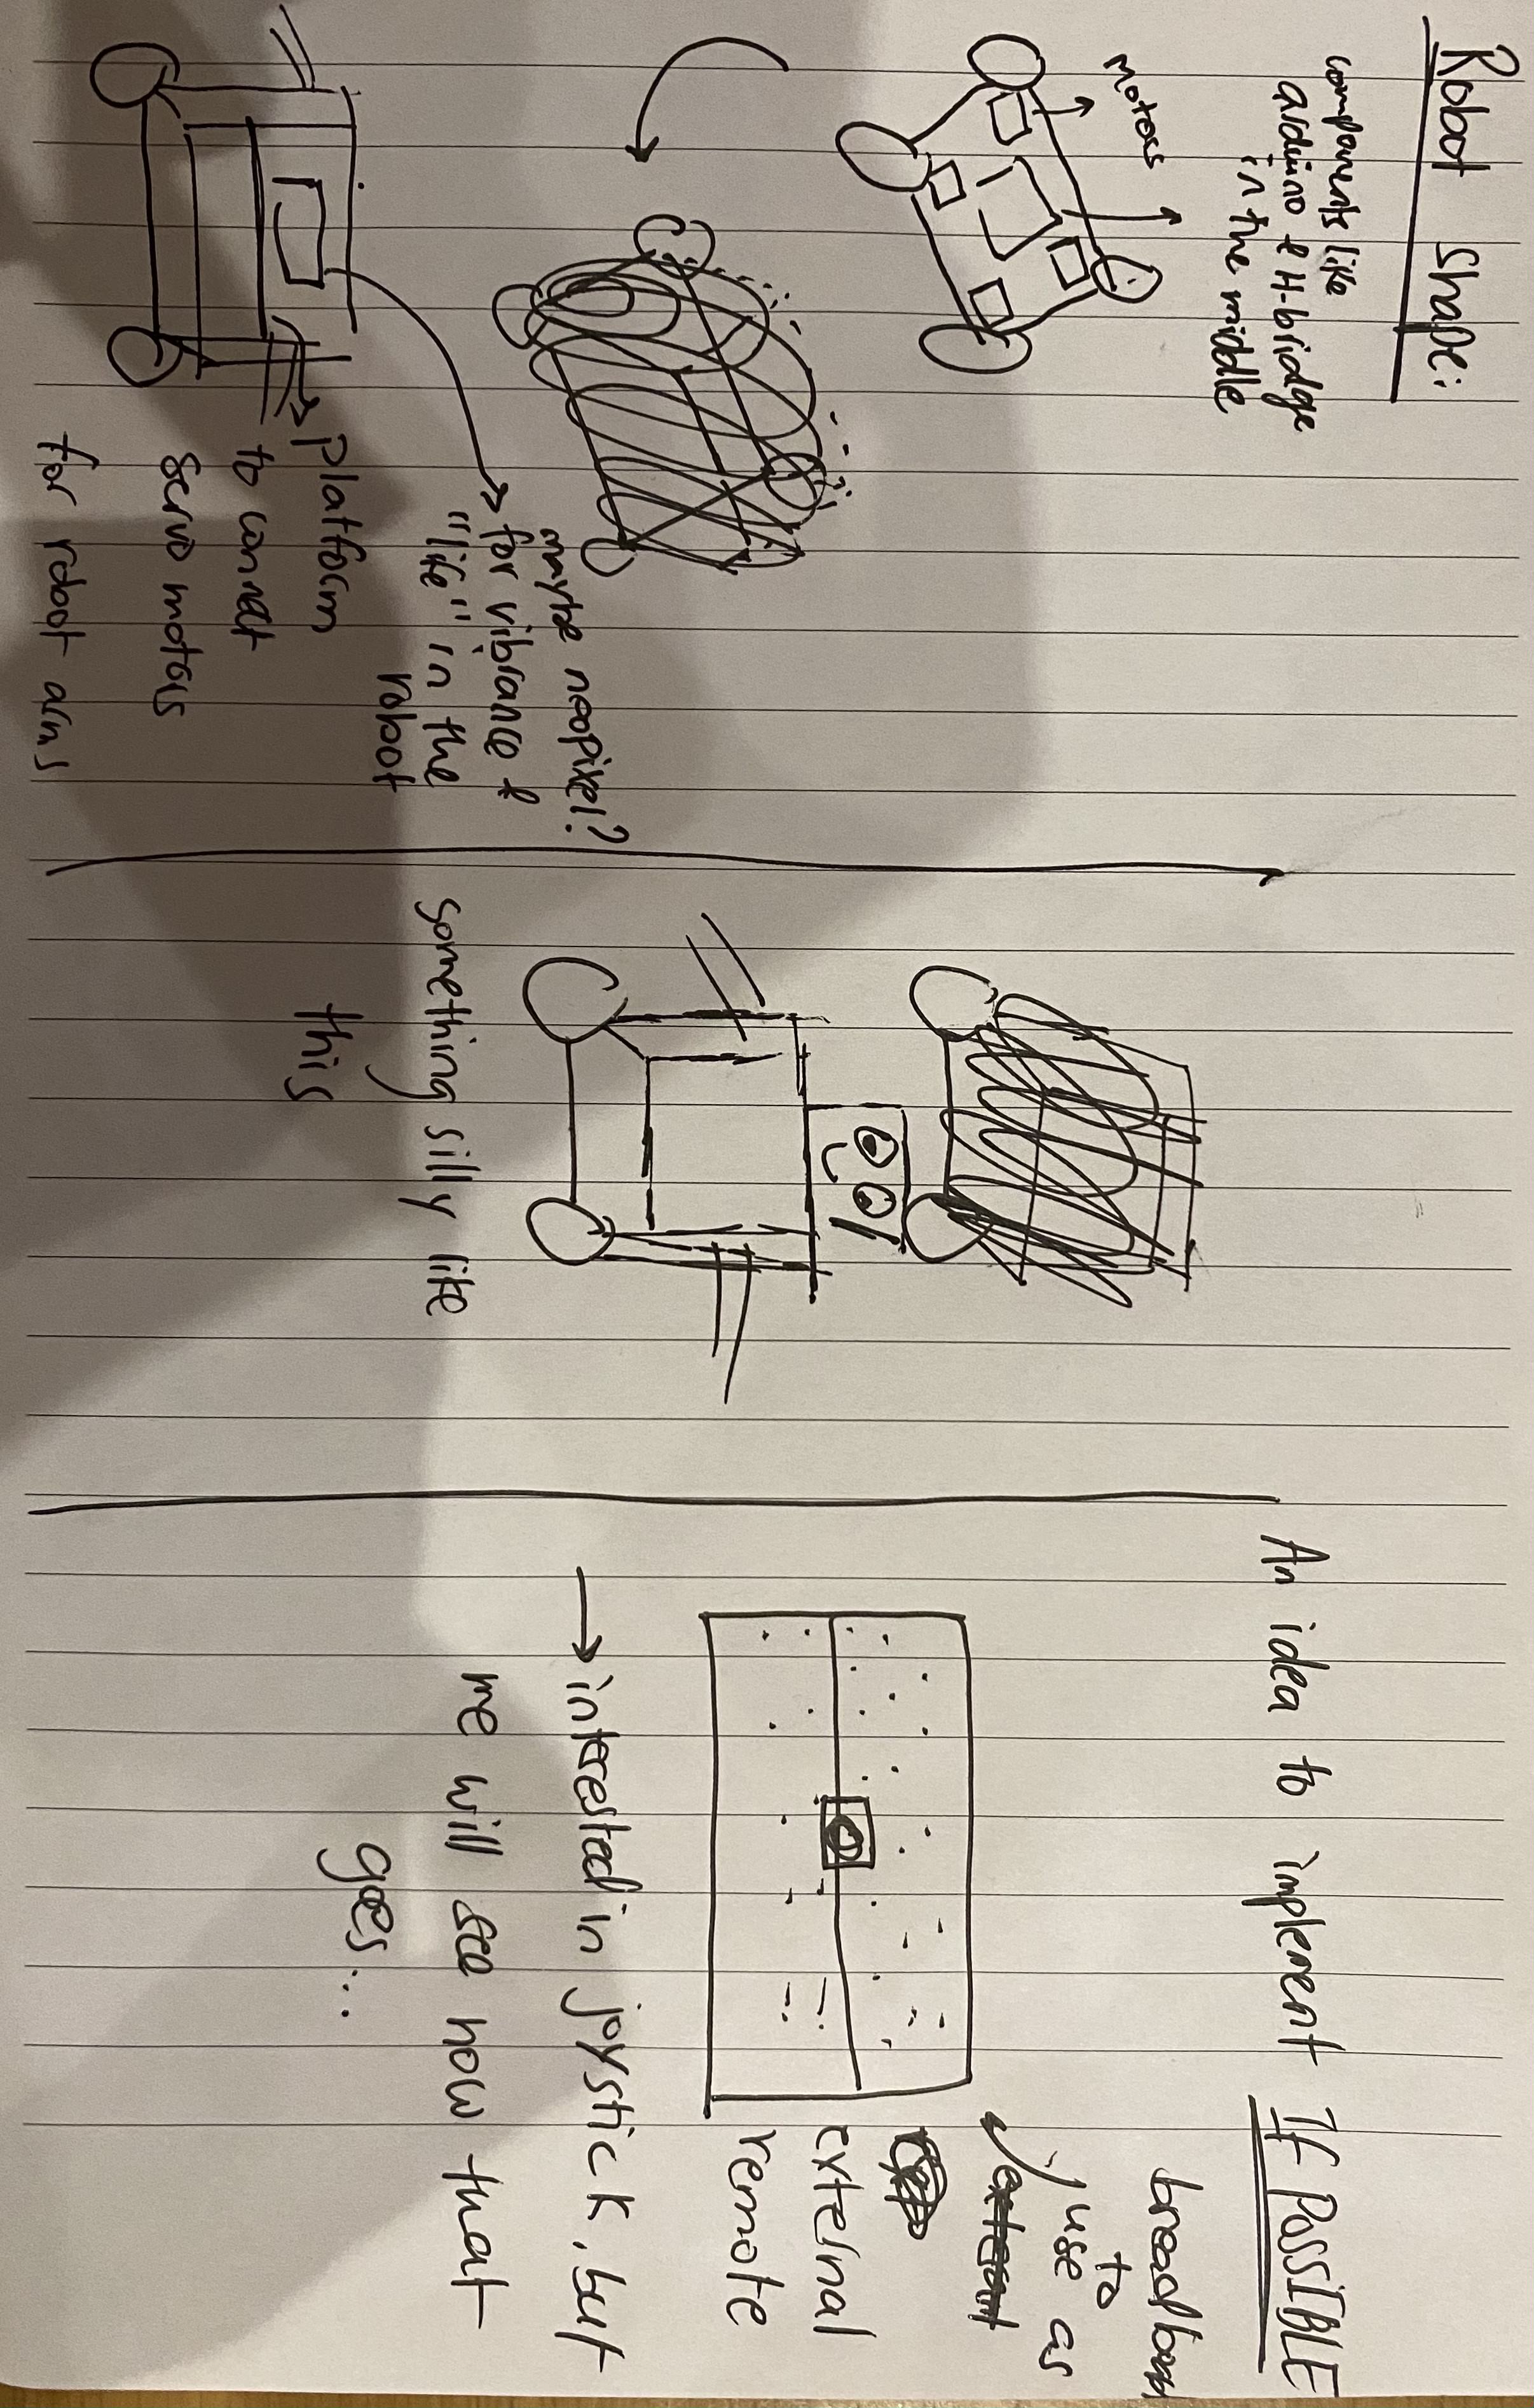 Robot Shape:
components like
arduino & H-bridge
in the middle
Motors
maybe neopixel?
for vibrance &
"life" in the
robot
platform
to connect
servo motors
for robot arms
something silly like
this
An idea to implement IF POSSIBLE
breadboard
to
use as
external
remote
interested in joystick, but
we will see how that
goes...